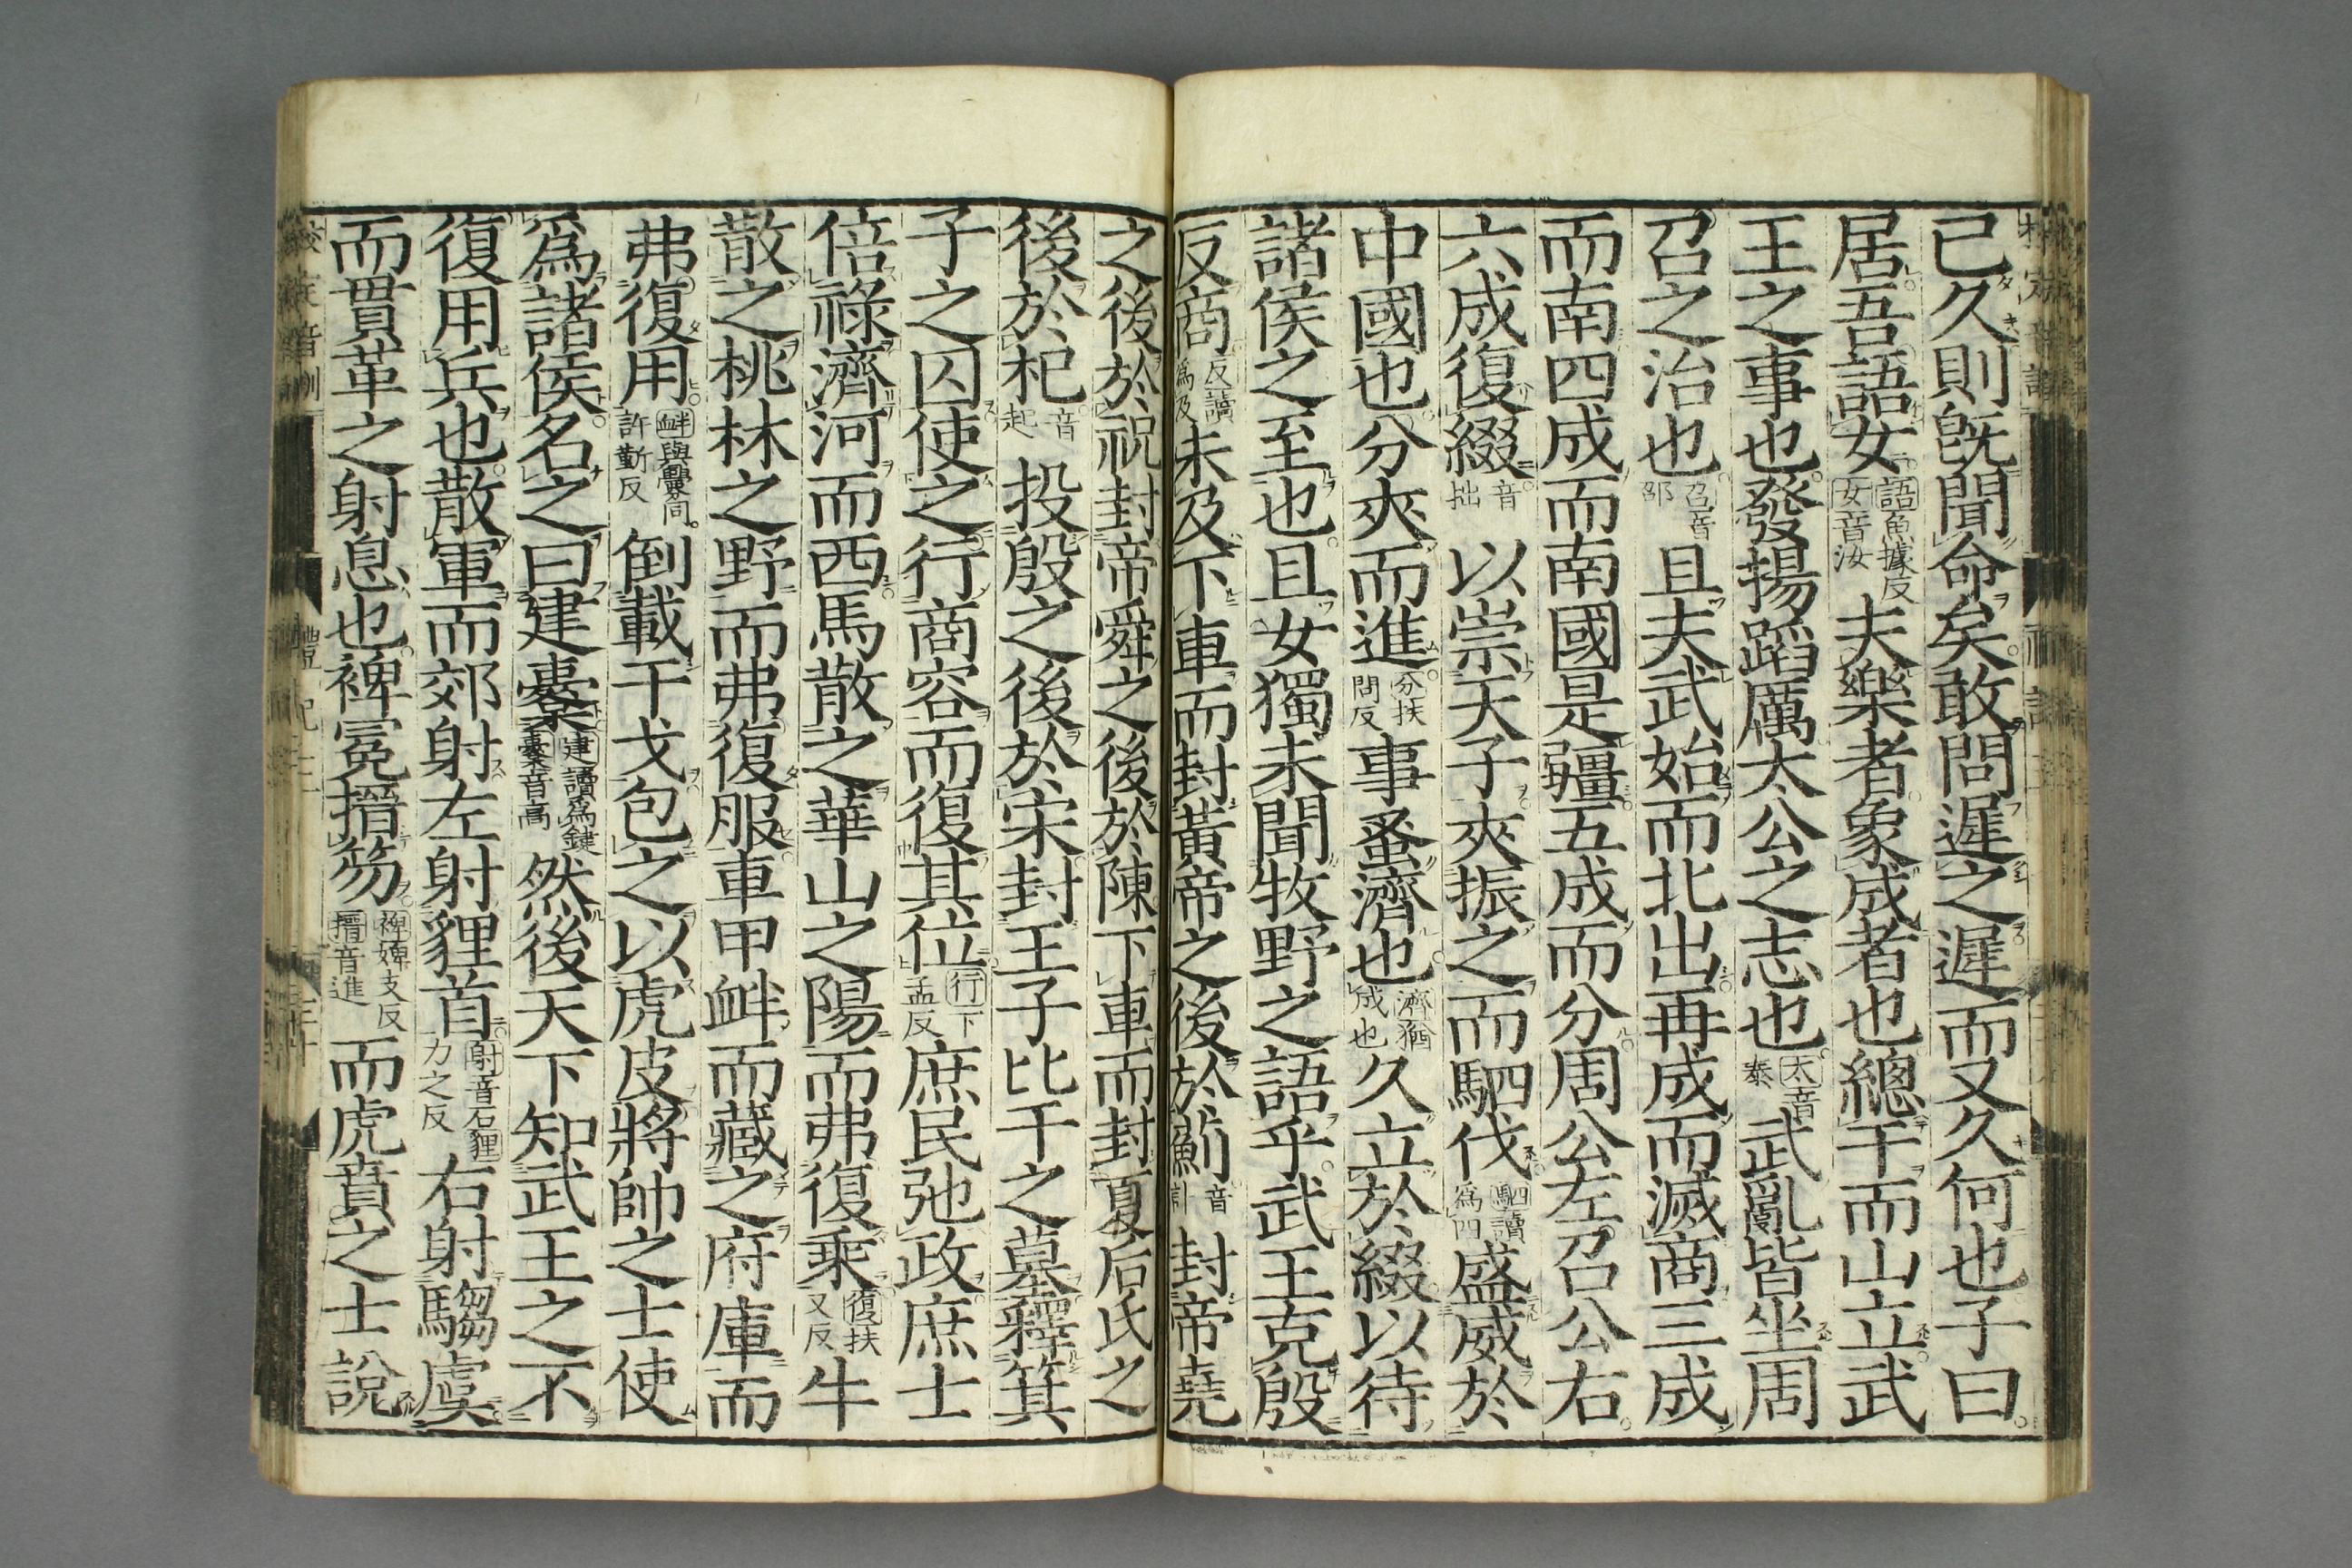 已久則旣聞命矣敢問遲之遲而又久何也子曰
居吾語女語魚據反女音汝夫樂者象成者也緫干而山立武
王之事也發揚蹈厲太公之志也太音泰武亂皆坐周
召之治也召音邵且夫武始而北出再成而滅商三成
而南四成而南國是疆五成而分周公左召公右
六成復綴音拙以崇天子夾振之而駟伐駟讀爲四盛威於
中國也分夾而進分扶問反事蚤濟也濟猶成也久立於綴以待
諸侯之至也且女獨未聞牧野之語乎武王克殷
反商反讀爲及未及下車而封黃帝之後於薊音計封帝堯
之後於祝封帝舜之後於陳下車而封夏后氏之
後於杞音起投殷之後於宋封王子比干之墓釋箕
子之囚使之行商容而復其位行下孟反庶民弛政庶士
倍祿濟河而西馬散之華山之陽而弗復乘復扶又反牛
散之桃林之野而弗復服車甲衅而藏之府庫而
弗復用衅與釁同許靳反倒載干戈包之以虎皮將帥之士使
爲諸侯名之曰建櫜建讀爲鍵櫜音高然後天下知武王之不
復用兵也散軍而郊射左射貍首射音石貍力之反右射騶虞
而貫革之射息也裨冕搢笏裨婢支反搢音進而虎賁之士說
禮記二